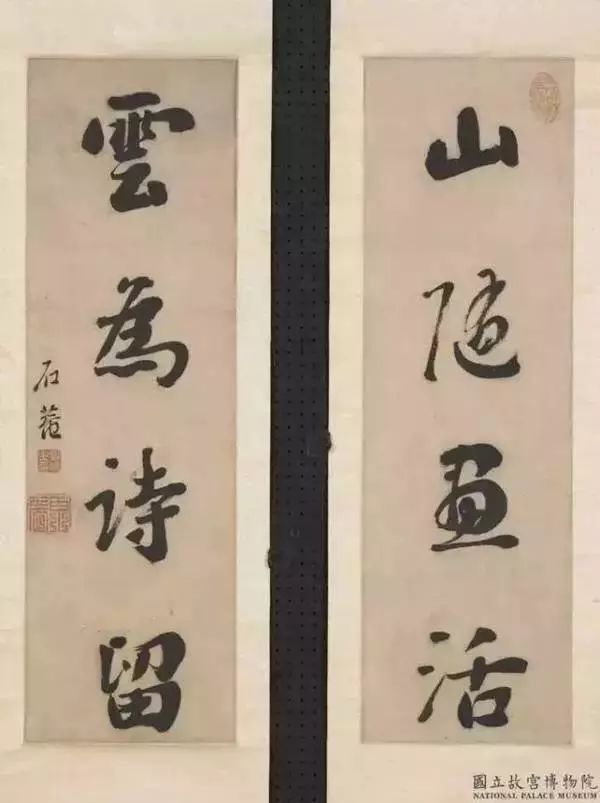 山隨畫活
雲為詩留
石菴
國立故宮博物院
NATIONAL PALACE MUSEUM